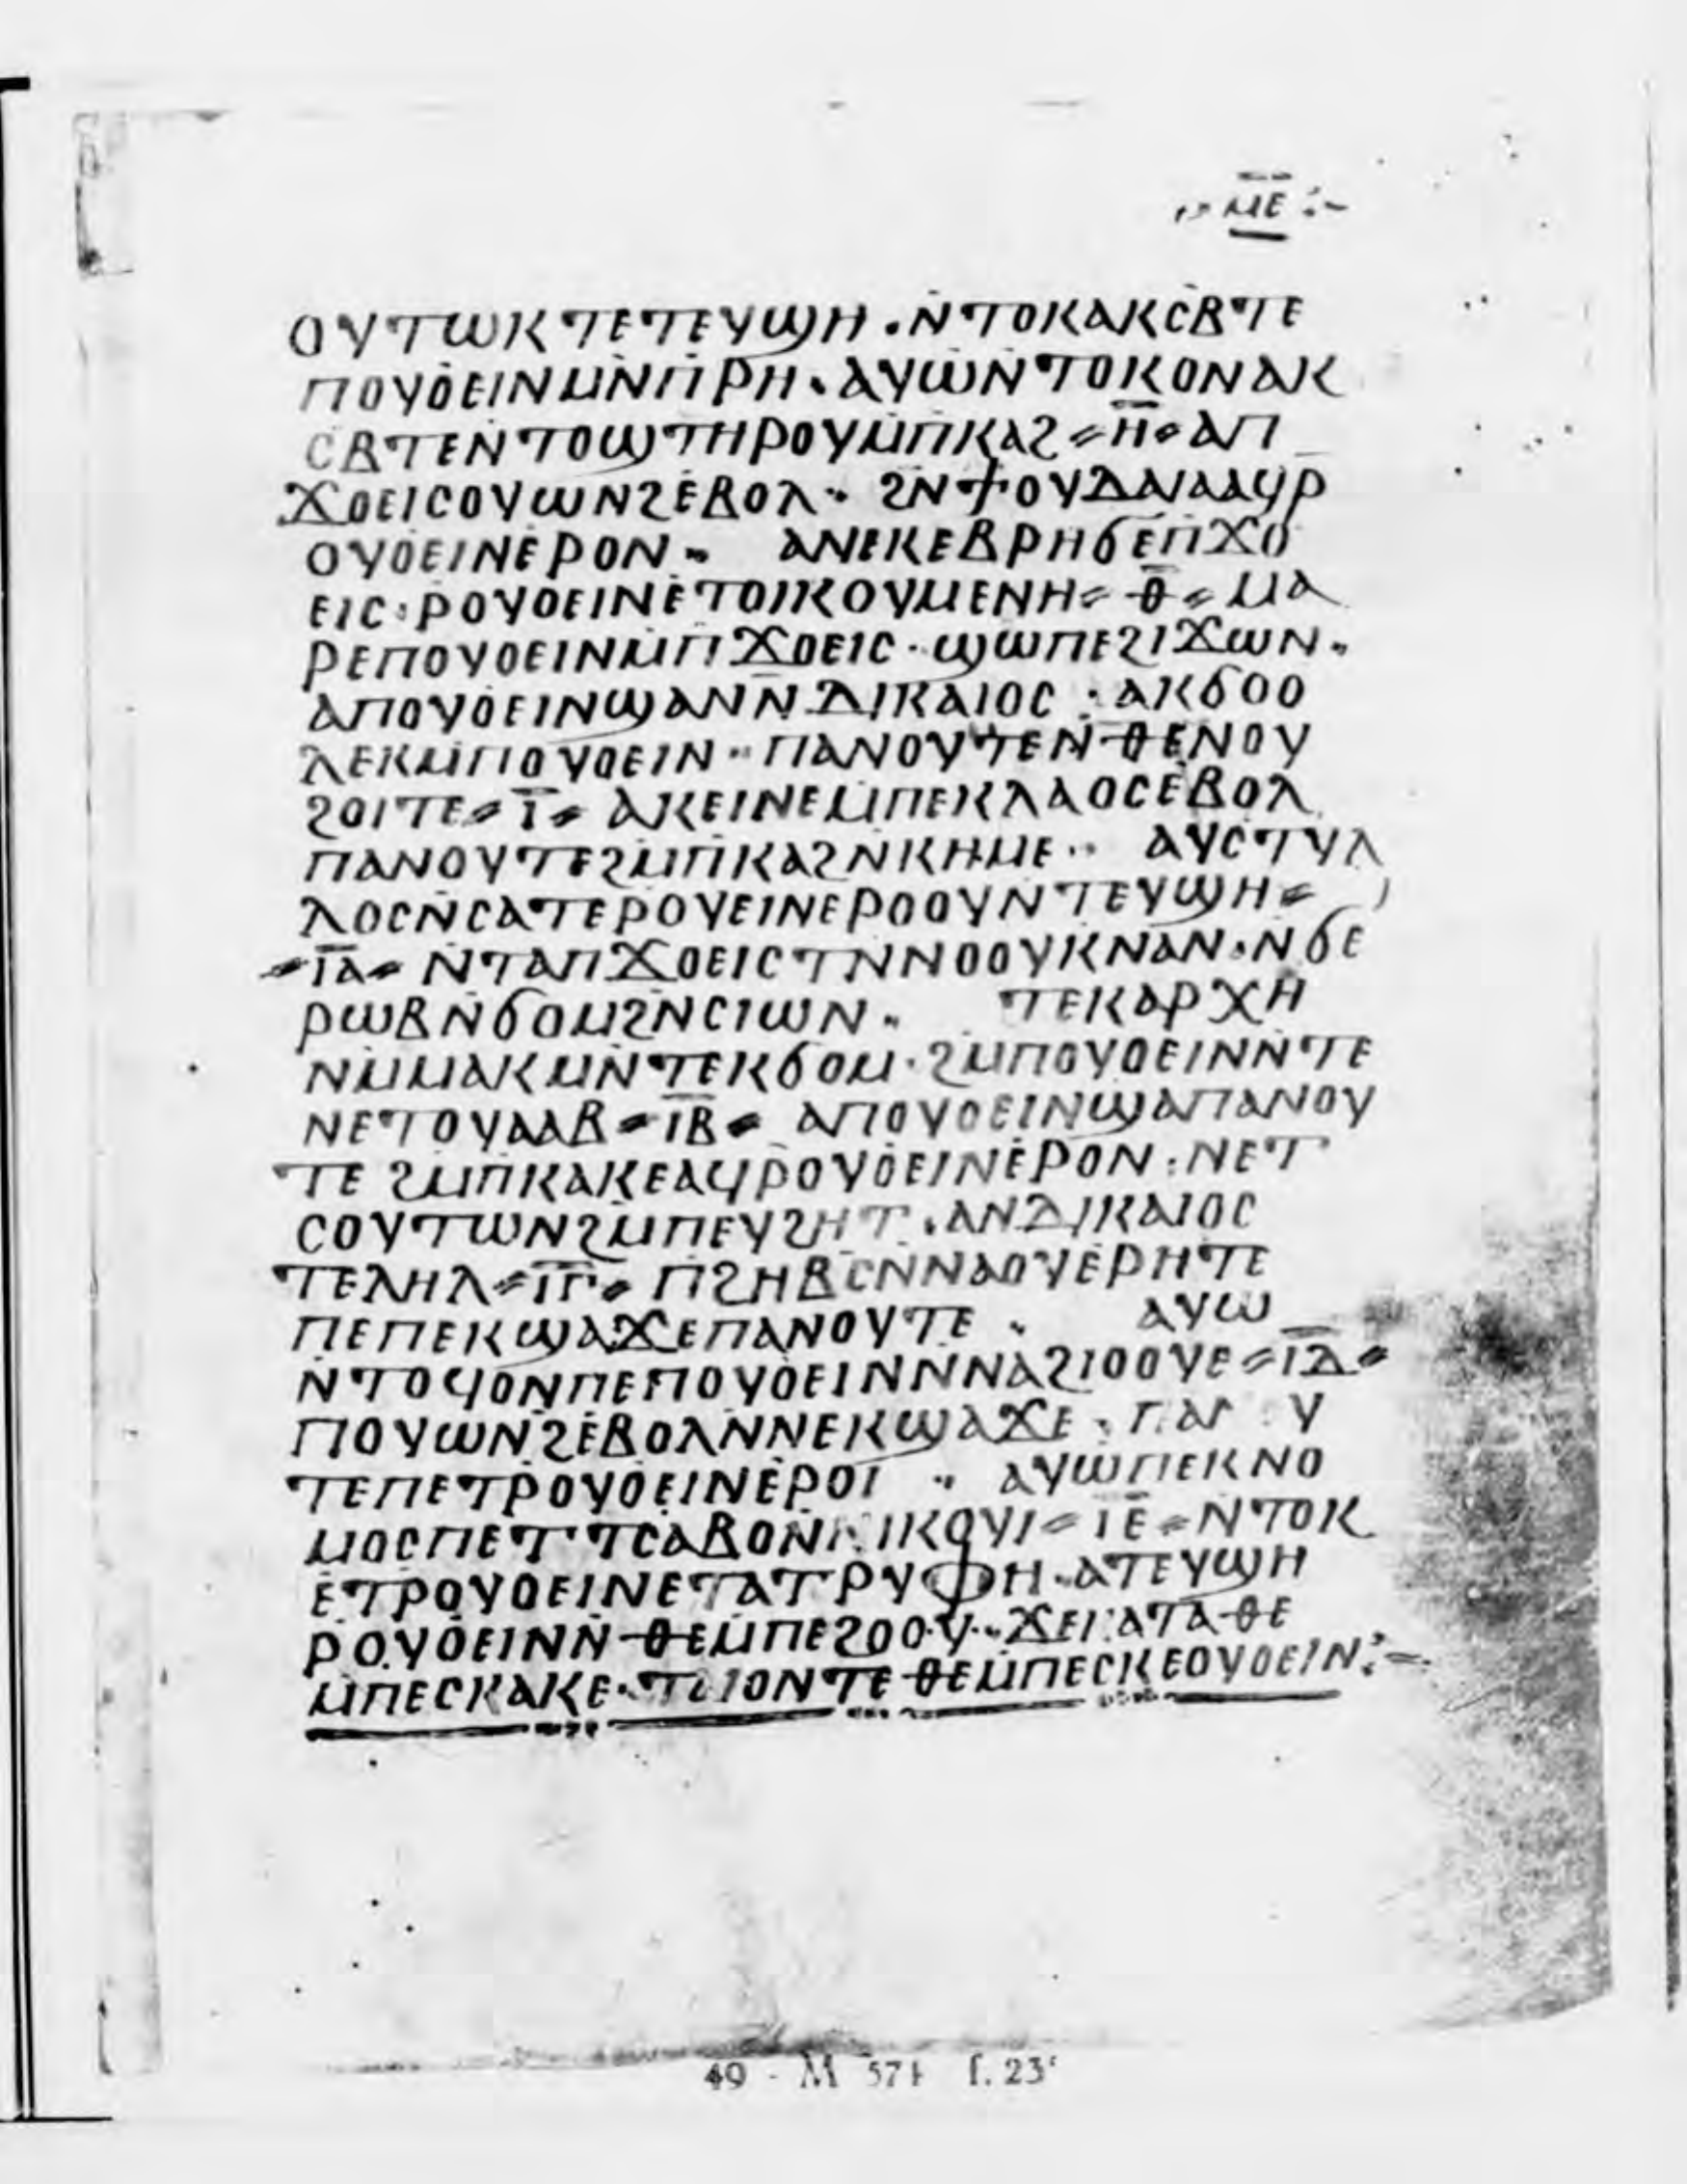 ⲙⲉ
ⲟⲩⲧⲱⲕ ⲧⲉ ⲧⲉⲩϣⲏ · ⲛ̇ⲧⲟⲕ ⲁⲕⲥⲃ̇ⲧⲉ
ⲡⲟⲩⲟ̇ⲉⲓⲛ ⲙⲛ̇ ⲡⲣⲏ · ⲁⲩⲱ ⲛ̇ⲧⲟⲕ ⲟⲛ ⲁⲕ
ⲥⲃⲧⲉ ⲛ̇ⲧⲟϣ ⲧⲏⲣⲟⲩ ⲙ̇ⲡⲕⲁϩ = ⲏ̅ = ⲁⲡ
ϫⲟⲉⲓⲥ ⲟⲩⲱⲛϩ ⲉ̇ⲃⲟⲗ · ϩⲛ ϯⲟⲩⲇⲁⲓⲁ ⲁϥⲣ
ⲟⲩⲟ̇ⲉⲓⲛ ⲉ̇ⲣⲟⲛ · ⲁⲛⲉⲕⲉⲃⲣⲏϭⲉ ⲡϫⲟ
ⲉⲓⲥ · ⲣⲟⲩⲟⲉⲓⲛ ⲉ̇ⲧⲟⲓⲕⲟⲩⲙⲉⲛⲏ = ⲑ̅ = ⲙⲁ
ⲣⲉ ⲡⲟⲩⲟⲉⲓⲛ ⲙ̇ⲡϫⲟⲉⲓⲥ · ϣⲱⲡⲉ ϩⲓϫⲱⲛ ·
ⲁⲡⲟⲩⲟ̇ⲉⲓⲛ ϣⲁ ⲛⲛ̇ⲇⲓⲕⲁⲓⲟⲥ : ⲁⲕϭⲟⲟ
ⲗⲉⲕ ⲙ̇ⲡⲟⲩⲟⲉⲓⲛ · ⲡⲁⲛⲟⲩⲧⲉ ⲛ̇ⲑⲉ ⲛⲟⲩ
ϩⲟⲓⲧⲉ = ⲓ̅ = ⲁⲕⲉⲓⲛⲉ ⲙ̇ⲡⲉⲕⲗⲁⲟⲥ ⲉ̇ⲃⲟⲗ
ⲡⲁⲛⲟⲩⲧⲉ ϩⲙ̇ ⲡⲕⲁϩ ⲛ̇ⲕⲏⲙⲉ · ⲁⲩⲥⲧⲩⲗ
ⲗⲟⲥ ⲛ̇ⲥⲁⲧⲉ ⲣⲟⲩⲉⲓⲛ ⲉⲣⲟⲟⲩ ⲛ̇ⲧⲉⲩϣⲏ =
= ⲓ̅ⲁ̅ = ⲛ̇ⲧⲁⲡϫⲟⲉⲓⲥ ⲧⲛⲛⲟⲟⲩⲕ ⲛⲁⲛ · ⲛ̇ϭⲉ
ⲣⲱⲃ ⲛ̇ϭⲟⲙ ϩⲛ̇ ⲥⲓⲱⲛ · ⲧⲉⲕⲁⲣⲭⲏ
ⲛⲙⲙⲁⲕ ⲙⲛ̇ ⲧⲉⲕϭⲟⲙ · ϩⲙ ⲡⲟⲩⲟⲉⲓⲛ ⲛ̇ⲧⲉ
ⲛⲉⲧⲟⲩⲁⲁⲃ = ⲓ̅ⲃ̅ = ⲁⲡⲟⲩⲟⲉⲓⲛ ϣⲁ ⲡⲁⲛⲟⲩ
ⲧⲉ ϩⲙ̇ ⲡⲕⲁⲕⲉ ⲁϥⲣⲟⲩⲟ̇ⲉⲓⲛ ⲉ̇ⲣⲟⲛ : ⲛⲉⲧ
ⲥⲟⲩⲧⲱⲛ ϩⲙ̇ ⲡⲉⲩϩⲏⲧ · ⲁⲛⲇⲓⲕⲁⲓⲟⲥ
ⲧⲉⲗⲏⲗ = ⲓ̅ⲅ̅ = ⲡϩⲏⲃ̅ⲥ̅ ⲛ̇ⲛⲁⲟⲩⲉ̇ⲣⲏⲧⲉ
ⲡⲉ ⲡⲉⲕϣⲁϫⲉ ⲡⲁⲛⲟⲩⲧⲉ · ⲁⲩⲱ
ⲛ̇ⲧⲟϥ ⲟⲛ ⲡⲉ ⲡⲟⲩⲟ̇ⲉⲓⲛ ⲛⲛⲁϩⲓⲟⲟⲩⲉ = ⲓ̅ⲇ̅ =
ⲡⲟⲩⲱⲛϩ ⲉ̇ⲃⲟⲗ ⲛⲛⲉⲕϣⲁϫⲉ · ⲩ
ⲧⲉ ⲡⲉⲧⲣⲟⲩⲟ̇ⲉⲓⲛ ⲉ̇ⲣⲟⲓ̈ · ⲁⲩⲱ ⲡⲉⲕⲛⲟ
ⲙⲟⲥ ⲡⲉⲧⲧⲥⲁⲃⲟ ⲛ̇ⲛⲓⲕⲟⲩⲓ = ⲓ̅ⲉ̅ = ⲛ̇ⲧⲟⲕ
ⲉ̇ⲧⲣⲟⲩⲟⲉⲓⲛ ⲉⲧⲁⲧⲣⲩⲫⲏ · ⲁⲧⲉⲩϣⲏ
ⲣⲟⲩⲟ̇ⲉⲓⲛ ⲛ̇ⲑⲉ ⲙ̇ⲡⲉϩⲟⲟⲩ · ϫⲉ ⲕⲁⲧⲁ ⲑⲉ
ⲙ̇ⲡⲉⲥⲕⲁⲕⲉ · ⲧⲁⲓ ⲟⲛ ⲧⲉ ⲑⲉ ⲙ̇ⲡⲉⲥⲕⲉⲟⲩⲟⲉⲓⲛ :=
49 - M 574 f. 23ʳ